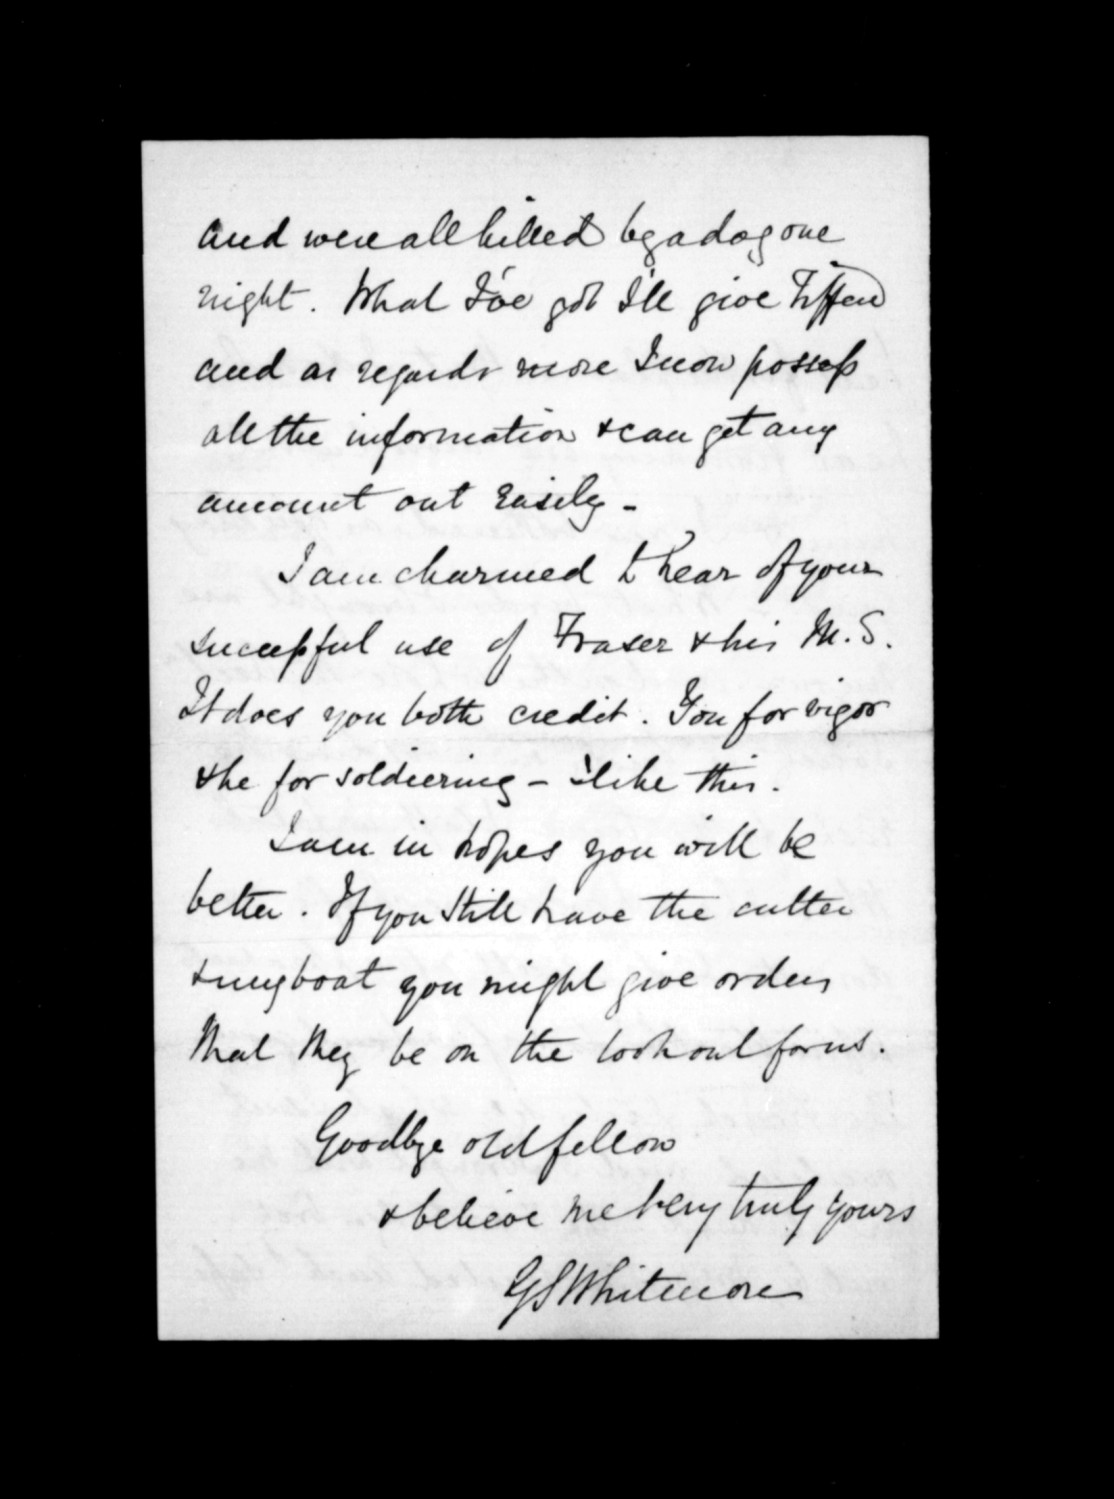 and were all killed by a dog one
night. What I've got I'll give Tiffen
and as regards more I now possess
all the information & can get any
amount out easily -
I am charmed to hear of your
successful use of Fraser & his M.S.
It does you both credit. You for vigor
& he for soldiering - I like this.
I am in hopes you will be
better. If you still have the cutter
& gunboat you might give orders
that they be on the look out for us.
Goodbye old fellow
& believe me very truly yours
GSWhitmore